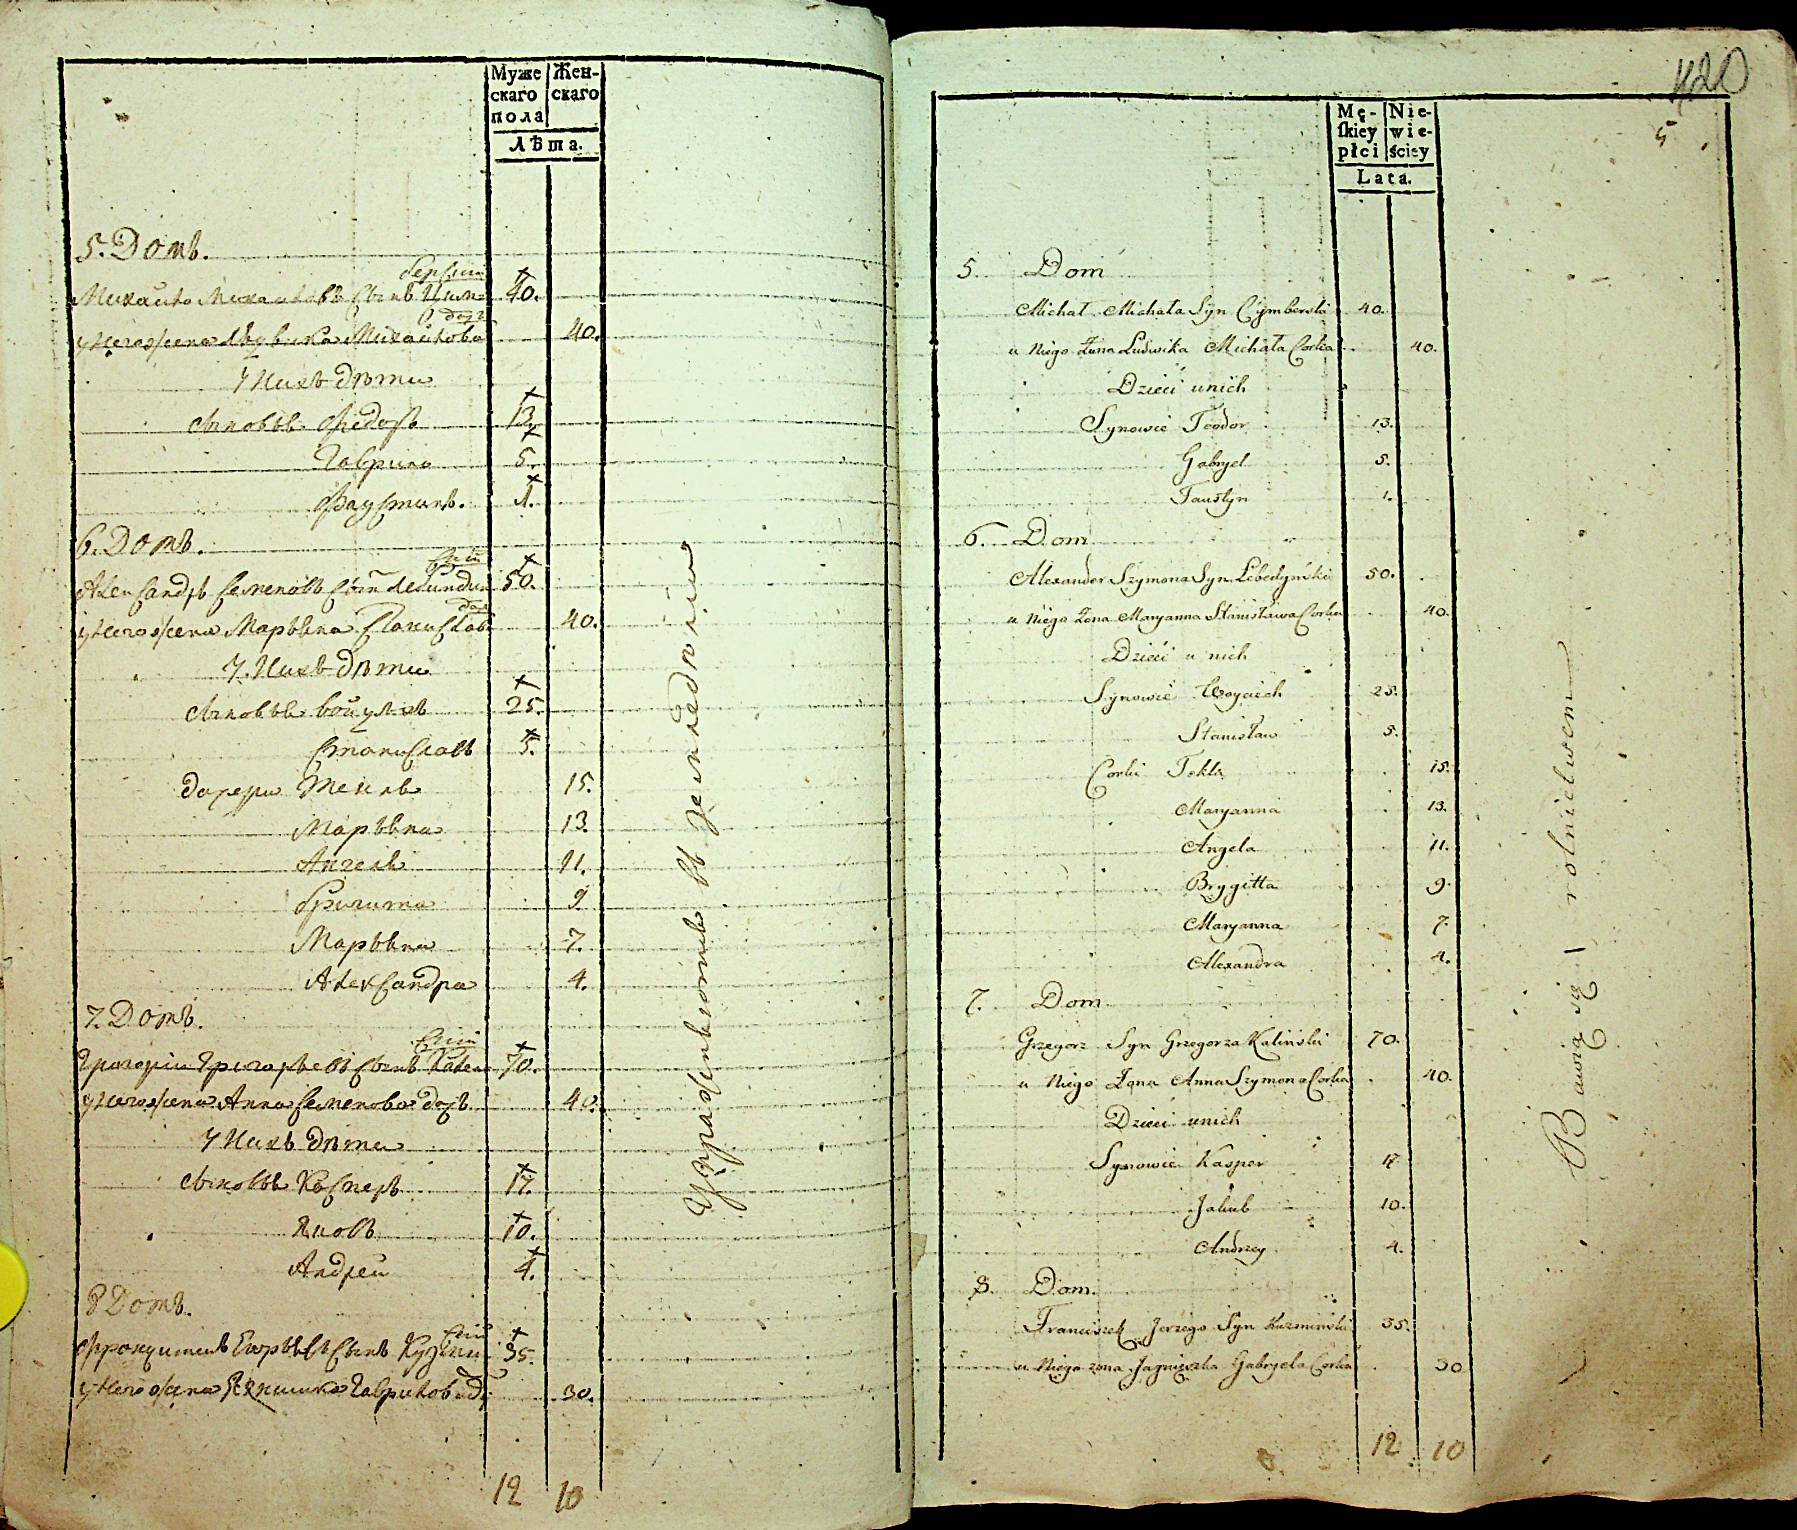 Муже
скаго
пола
Жен-
скаго
Лѣта.
5. Домъ.
Михайло Михайловъ Сынъ Цим-
берский 40.
у Него жена Людвика Михайлова
дочь 40.
У Нихъ дѣти
сыновье Федоръ 13.
Гаврило 5.
Фаустинъ. 1.
6. Домъ.
Александръ Семеновъ Сынъ Лебинди-
ский 50.
у Него жена Марьяна Станислав
доч 40.
У Нихъ дѣти
сыновье Войцехъ 25.
Станиславъ 5.
дочери Текля 15.
Марьяна 13.
Ангеля 11.
Бригита 9
Марьяна 7.
Александра 4.
7. Домъ.
Григорій Григорьевъ Сынъ Кален-
ский 70.
у Него жена Анна Семенова дочь 40.
У Нихъ дѣти
сыновье Касперъ 17.
Яковъ 10.
Андрей 4.
8 Домъ.
Францишекъ Егорьевъ Сынъ Кузмин-
ский 35.
у Него жена Ягнишка Гаврилова д. 30.
12 10
Упражняются въ земледѣліи
420
5
Mę-
skiey
płci
Nie-
wie-
ściey
Lata.
5. Dom
Michał Michała Syn Cymberski 40.
u Niego Żona Ludwika Michała Corka 40.
Dzieci u nich
Synowie Teodor 13.
Gabryel 5.
Faustyn 1.
6. Dom
Alexander Szymona Syn Lebedyński 50.
u Niego Żona Maryanna Stanisława Corka 40.
Dzieci u nich
Synowie Woyciech 25.
Stanisław 5.
Corki Tekla 15.
Maryanna 13.
Angela 11.
Brygitta 9.
Maryanna 7.
Alexandra 4.
7. Dom
Grzegorz Syn Grzegorza Kaliński 70.
u Niego Żona Anna Szymona Corka 40.
Dzieci u nich
Synowie Kasper 17
Jakub 10.
Andrzey 4.
8. Dom.
Franciszek Jerzego Syn Kuzminski 35.
u Niego żona Jagniszka Gabryela Corka 30
12 10
Bawią się rolnictwem